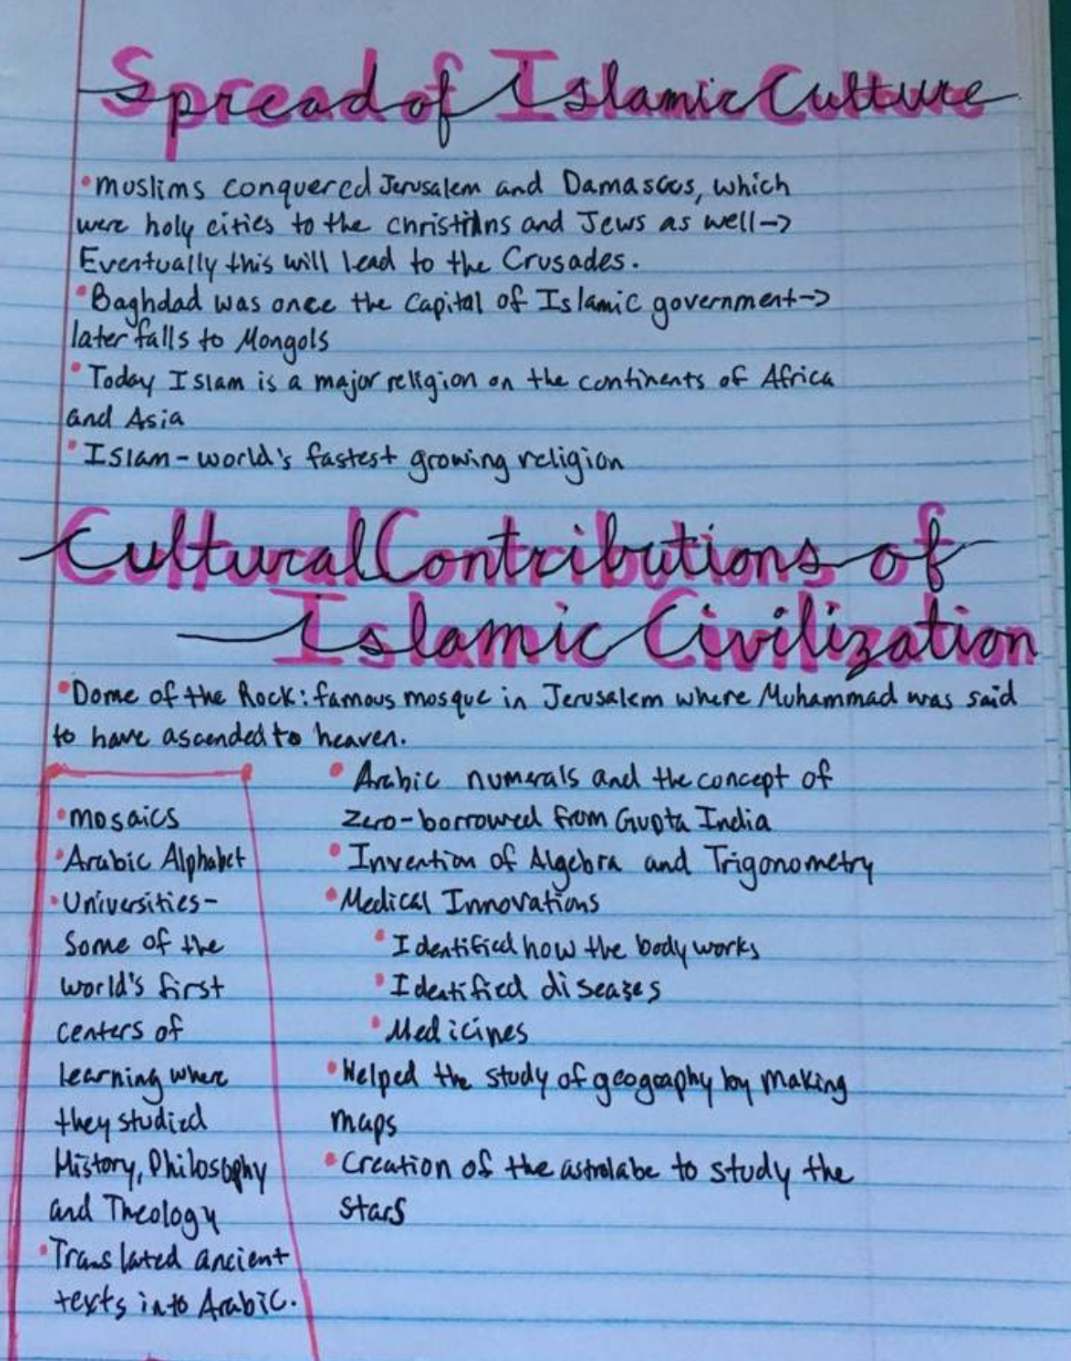 Spread of Islamic Culture
• Muslims conquered Jerusalem and Damascus, which
were holy cities to the Christians and Jews as well->
Eventually this will lead to the Crusades.
• Baghdad was once the capital of Islamic government->
later falls to Mongols
• Today Islam is a major religion on the continents of Africa
and Asia
• Islam - world's fastest growing religion
Cultural Contributions of
Islamic Civilization
• Dome of the Rock: famous mosque in Jerusalem where Muhammad was said
to have ascended to heaven.
• Mosaics
• Arabic Alphabet
• Universities-
Some of the
world's first
centers of
learning where
they studied
History, Philosophy
and Theology
• Translated ancient
texts into Arabic.
• Arabic numerals and the concept of
zero-borrowed from Gupta India
• Invention of Algebra and Trigonometry
• Medical Innovations
• Identified how the body works
• Identified diseases
• Medicines
• Helped the study of geography by making
maps
• Creation of the astrolabe to study the
stars